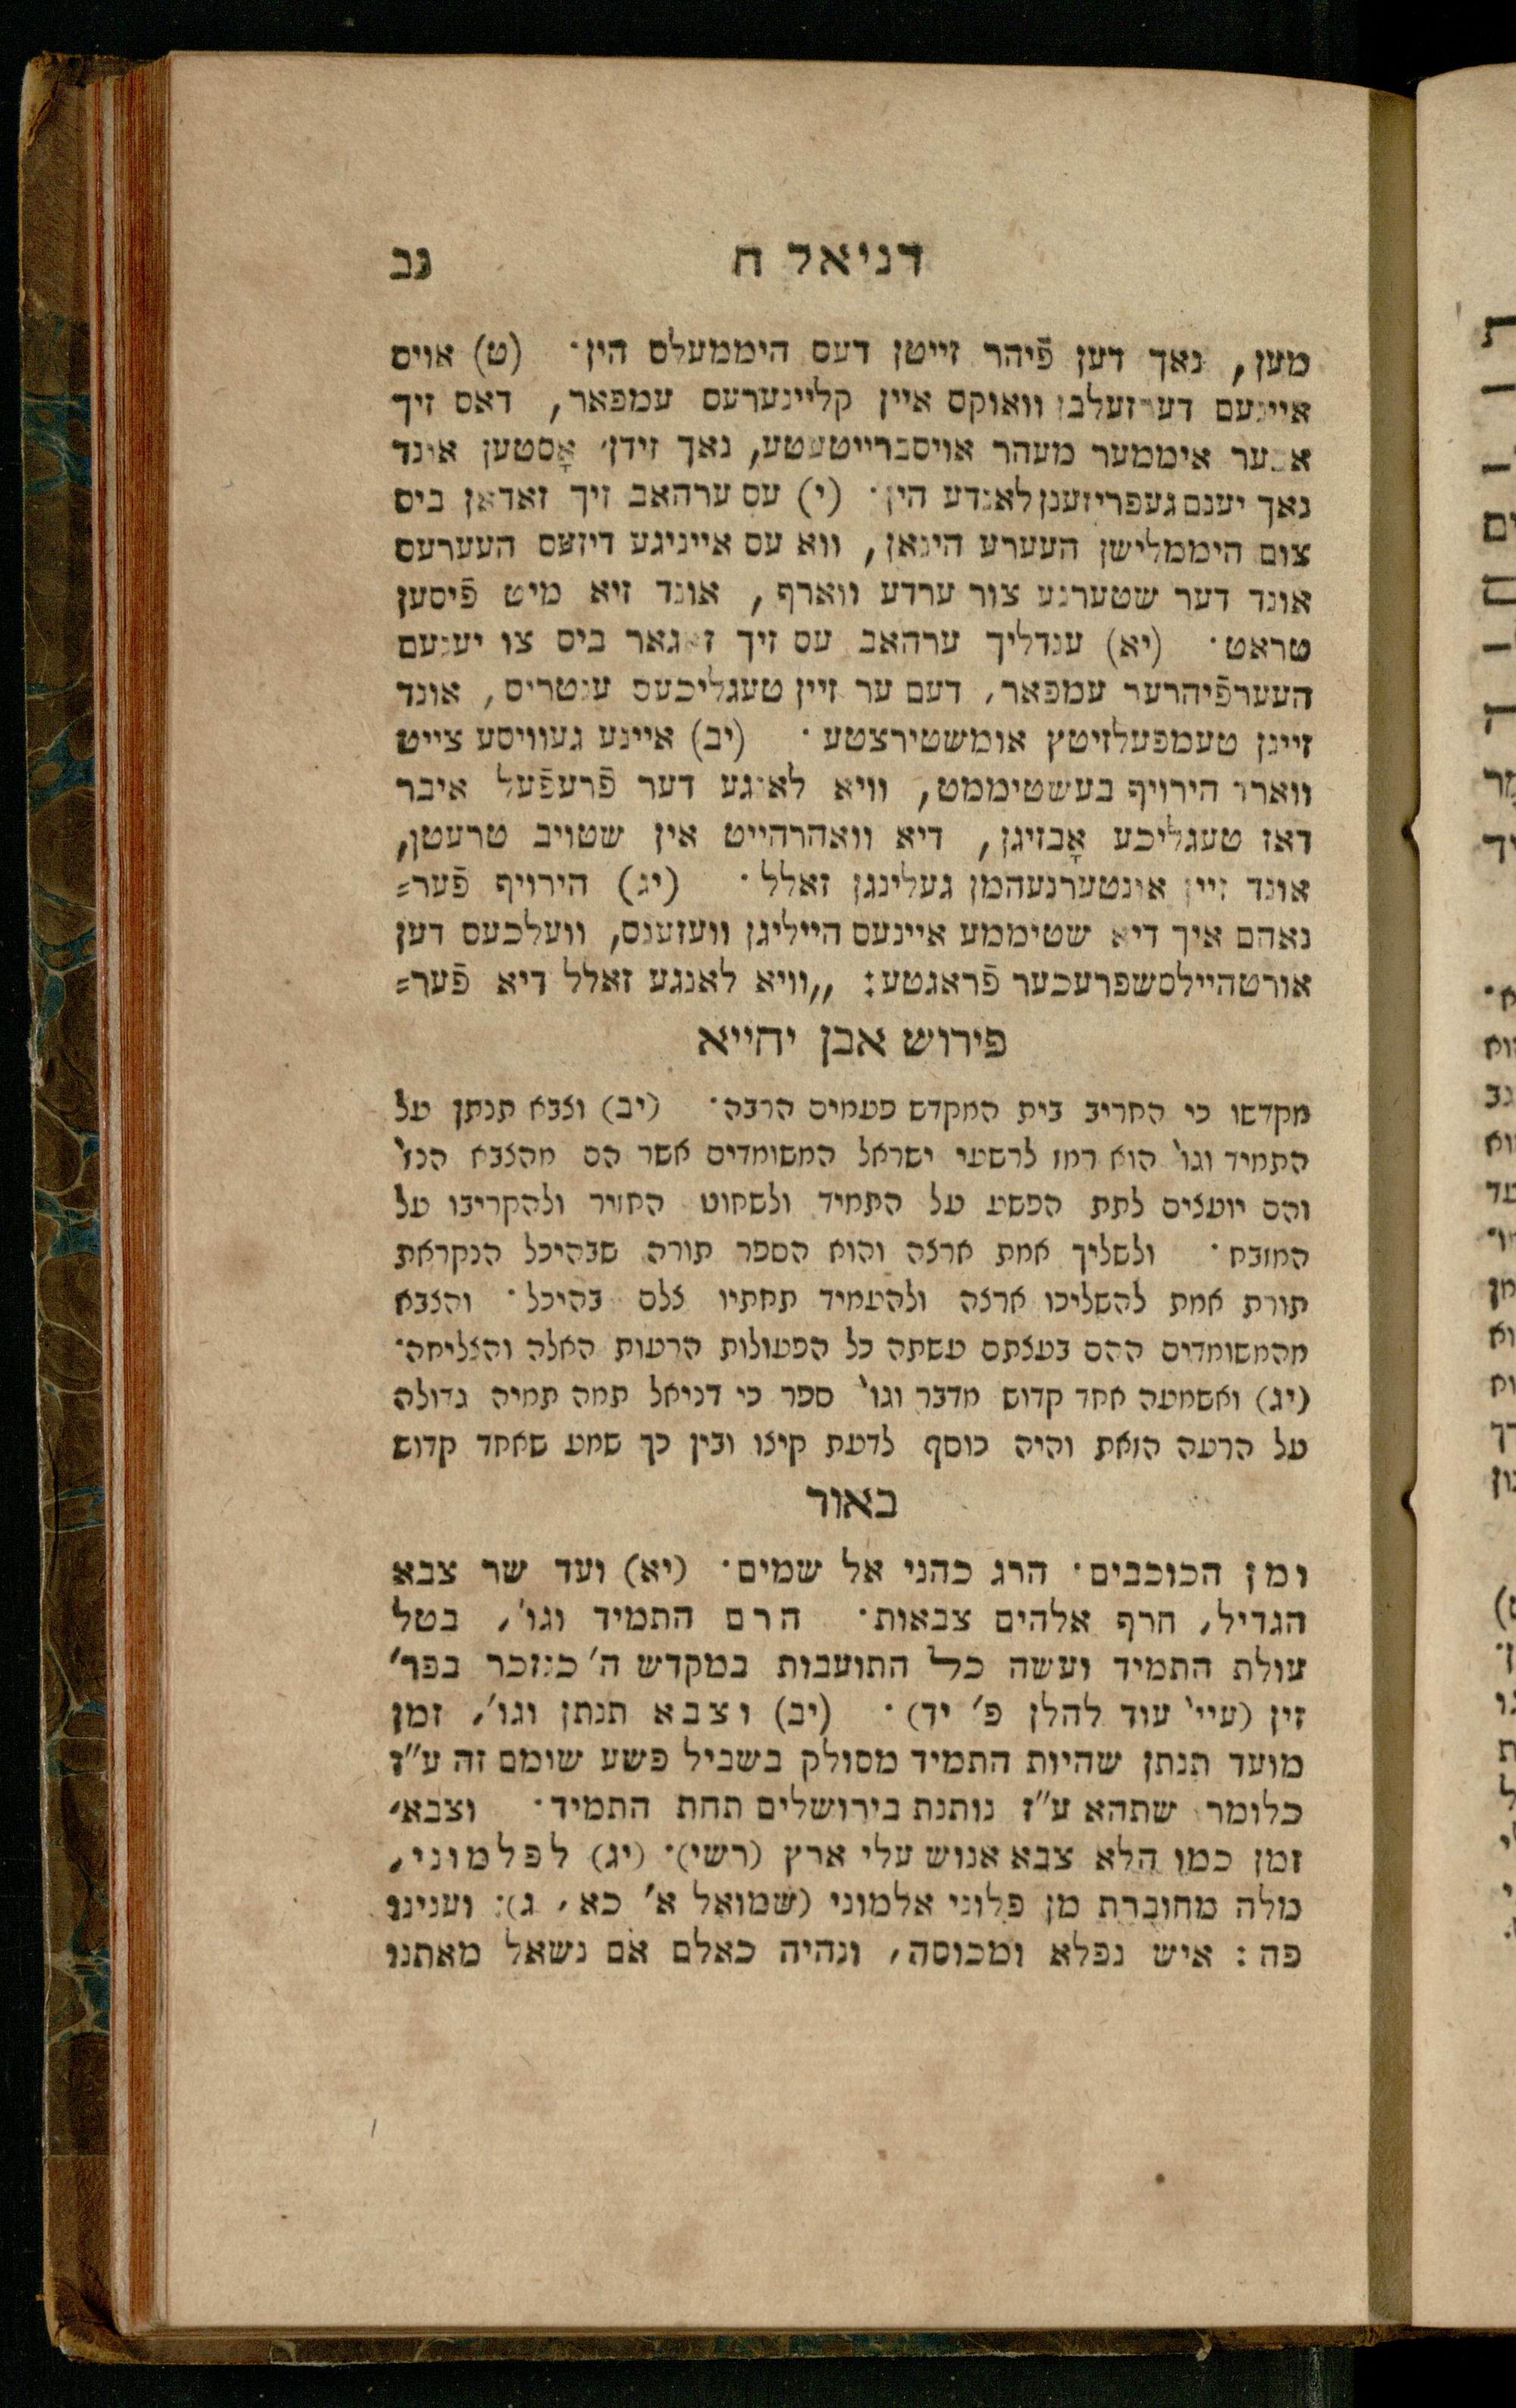 דניאל ח נב
מען, נאך דען פֿיהר זייטן דעס היממעלס הין· (ט) אויס
איינעם דערזעלבן וואוקס איין קליינערעס עמפאר, דאס זיך
אבער איממער מעהר אויסברייטעטע, נאך זידן, אָסטען אונד
נאך יענם געפריזענן לאנדע הין· (י) עס ערהאב זיך זאדאן ביס
צום היממלישן העערע הינאן, ווא עס אייניגע דיזעס העערעס
אונד דער שטערנע צור ערדע ווארף, אונד זיא מיט פֿיסען
טראט· (יא) ענדליך ערהאב עס זיך זאגאר ביס צו יענעם
העערפֿיהרער עמפאר, דעם ער זיין טעגליכעס ענטריס, אונד
זיינן טעמפעלזיטץ אומשטירצטע· (יב) איינע געוויסע צייט
ווארד הירויף בעשטיממט, וויא לאנגע דער פֿרעפֿעל איבר
דאז טעגליכע אָבזיגן, דיא וואהרהייט אין שטויב טרעטן,
אונד זיין אונטערנעהמן געלינגן זאלל· (יג) הירויף פֿער=
נאהם איך דיא שטיממע איינעס הייליגן וועזענס, וועלכעס דען
אורטהיילסשפרעכער פֿראגטע: ,,וויא לאנגע זאלל דיא פֿער=
פירוש אבן יחייא
מקדשו כי החריב בית המקדש פעמים הרבה· (יב) וצבא תנתן על
התמיד וגו' הוא רמז לרשעי ישראל המשומדים אשר הם מהצבא הנז'
והם יועצים לתת הפשע על התמיד ולשחוט החזיר ולהקריבו על
המזבח· ולשליך אמת ארצה והוא הספר תורה שבהיכל הנקראת
תורת אמת להשליכו ארצה ולהעמיד תחתיו צלם בהיכל· והצבא
מהמשומדים ההם בעצתם עשתה כל הפעולות הרעות האלה והצליחה·
(יג) ואשמעה אחד קדוש מדבר וגו' ספר כי דניאל תמה תמיה גדולה
על הרעה הזאת והיה כוסף לדעת קיצו ובין כך שמע שאחד קדוש
באור
ומן הכוכבים· הרג כהני אל שמים· (יא) ועד שר צבא
הגדיל, חרף אלהים צבאות· הרם התמיד וגו', בטל
עולת התמיד ועשה כל התועבות במקדש ה' כנזכר בפר'
זין (עיי' עוד להלן פ' יד)· (יב) וצבא תנתן וגו', זמן
מועד תנתן שהיות התמיד מסולק בשביל פשע שומם זה ע"ז
כלומר שתהא ע"ז נותנת בירושלים תחת התמיד· וצבא,
זמן כמו הלא צבא אנוש עלי ארץ (רשי)· (יג) לפלמוני,
מלה מחוברת מן פלוני אלמוני (שמואל א' כא, ג): וענינו
פה: איש נפלא ומכוסה, ונהיה כאלם אם נשאל מאתנו